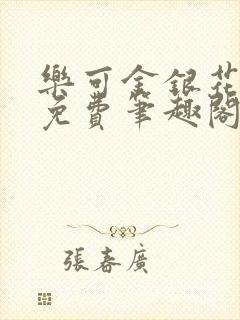 樂可金銀花
免費筆趣閣
張春廣